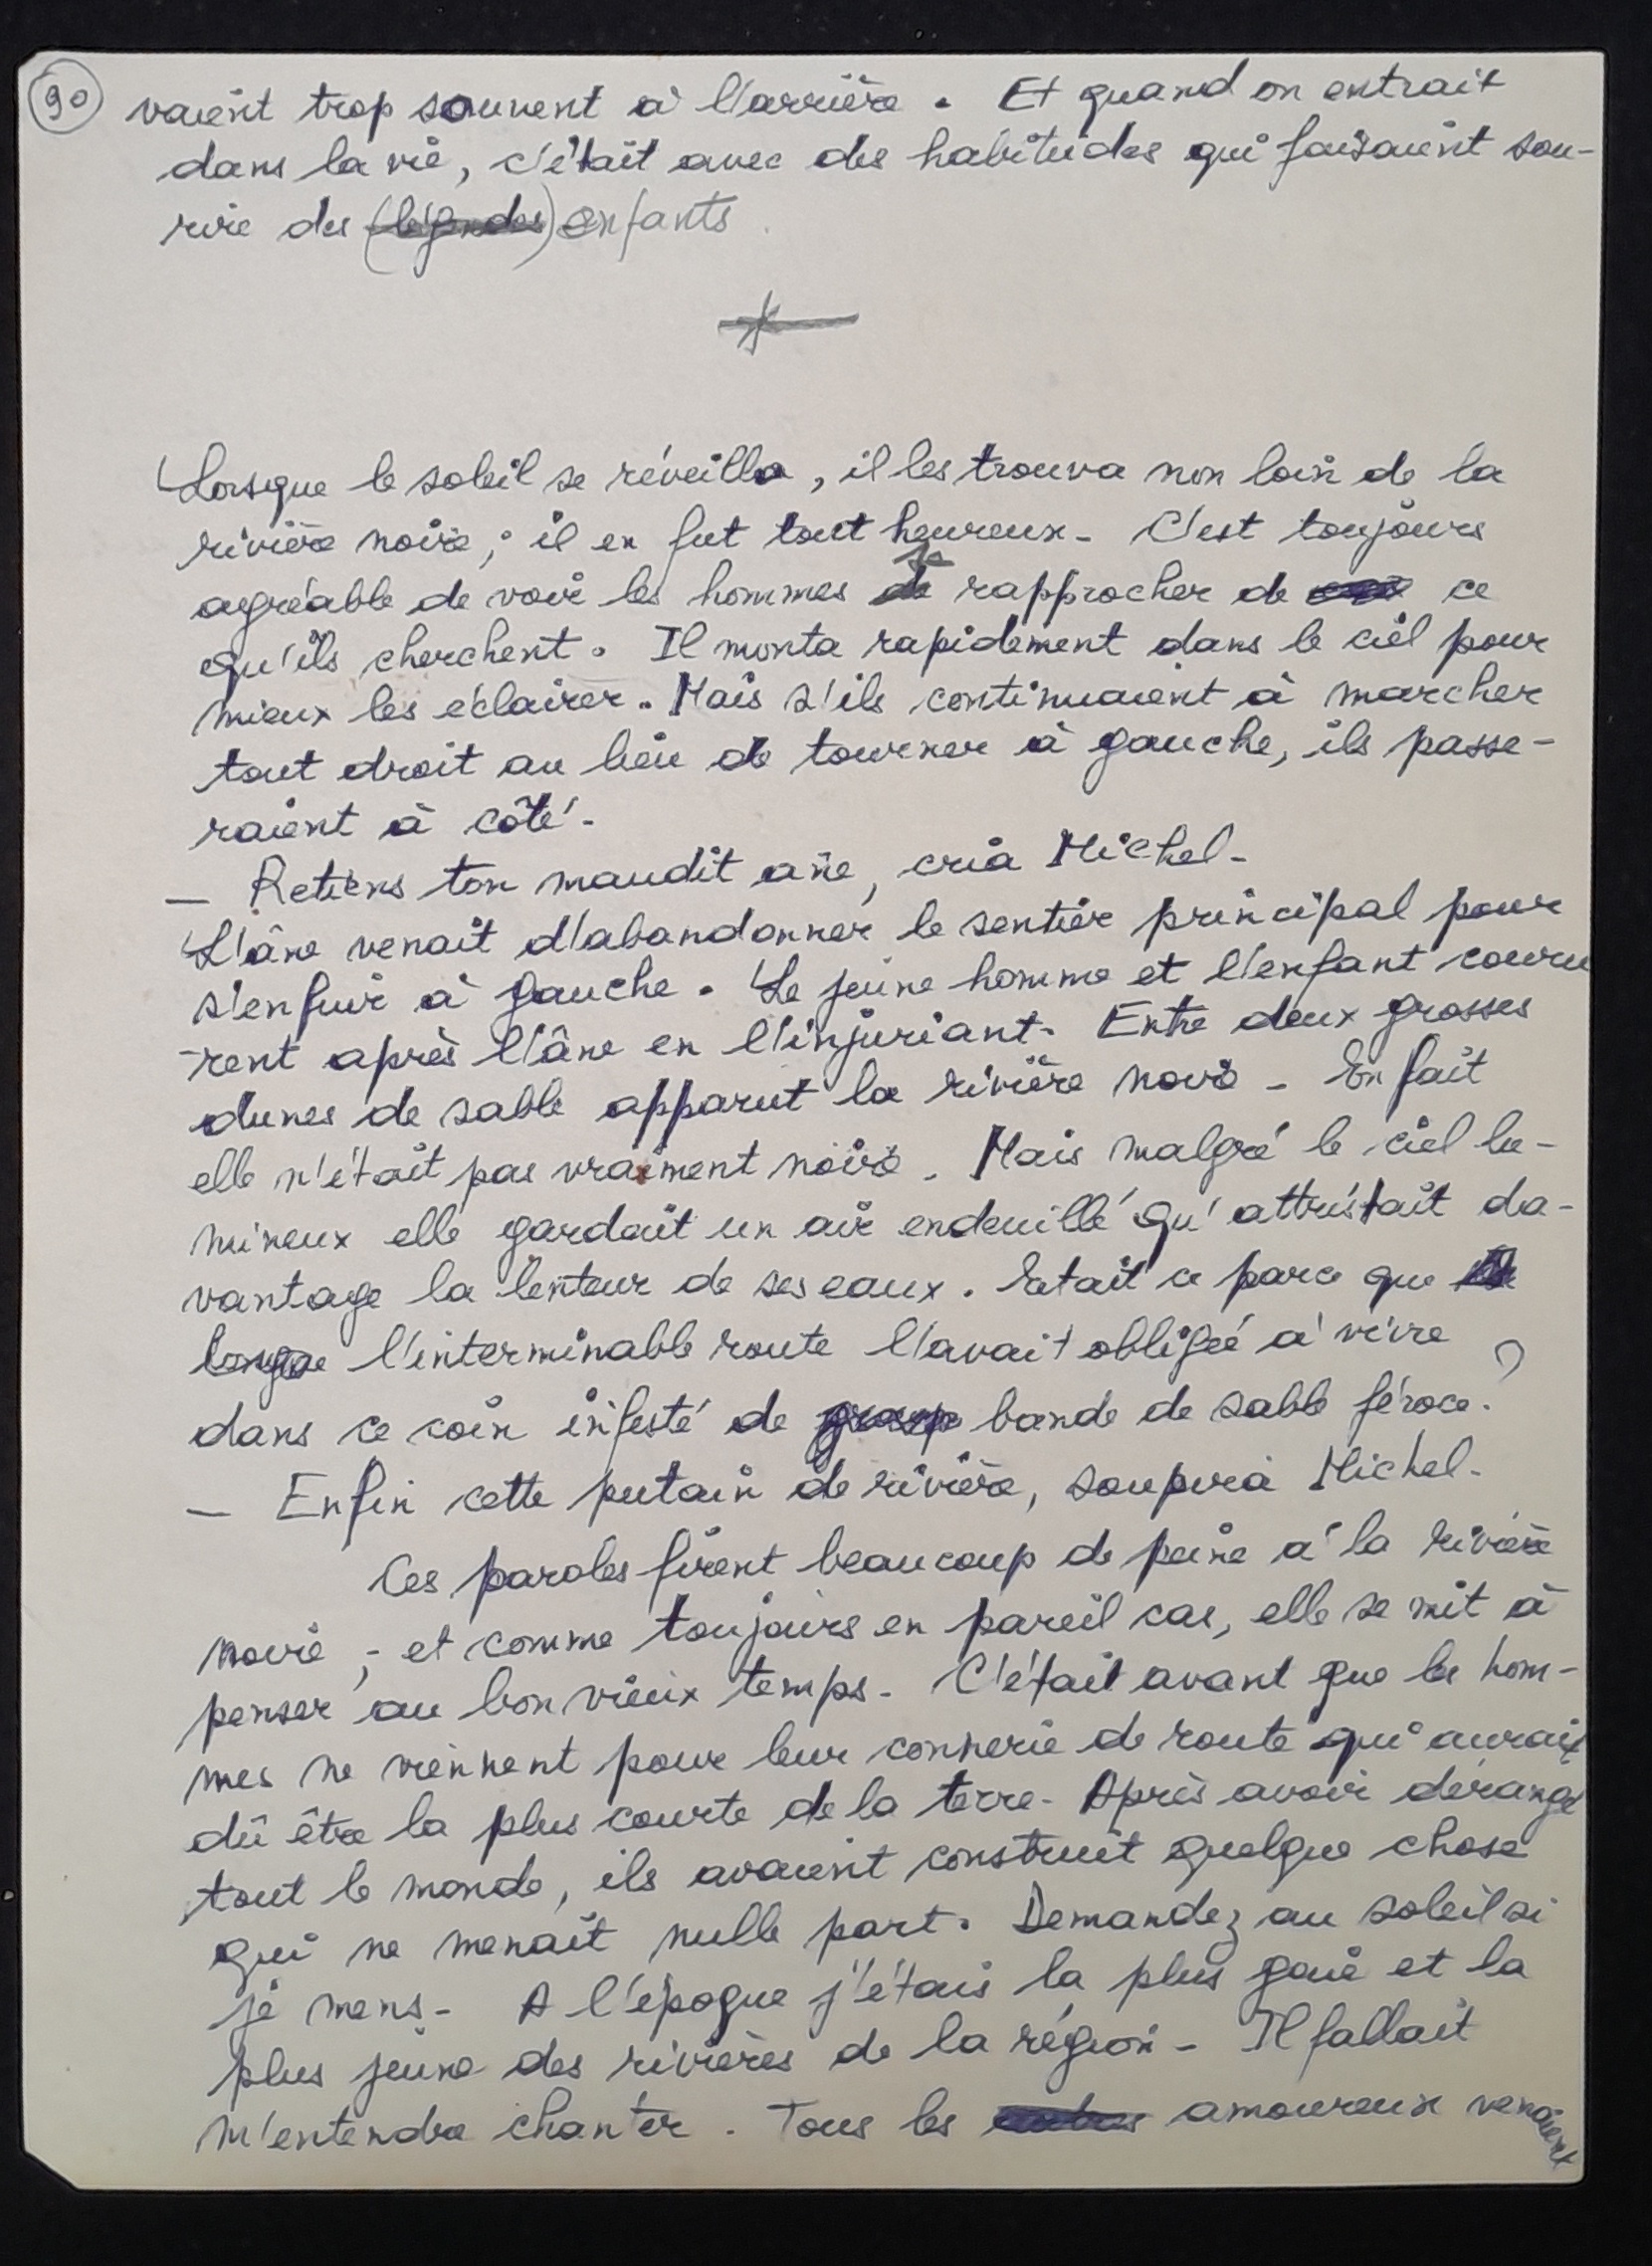 90
vaient trop souvent à l'arrière. Et quand on entrait
dans la vie, c'était avec des habitudes qui faisaient sou-
rire des (légendes) enfants.
Lorsque le soleil se réveilla, il les trouva non loin de la
rivière noire; il en fut tout heureux. C'est toujours
agréable de voir les hommes se rapprocher de ce
qu'ils cherchent. Il monta rapidement dans le ciel pour
mieux les éclairer. Mais s'ils continuaient à marcher
tout droit au lieu de tourner à gauche, ils passe-
raient à côté.
— Retiens ton maudit âne, cria Michel.
L'âne venait d'abandonner le sentier principal pour
s'enfuir à gauche. Le jeune homme et l'enfant couru
-rent après l'âne en l'injuriant. Entre deux grosses
dunes de sable apparut la rivière noire. En fait
elle n'était pas vraiment noire. Mais malgré le ciel lu-
mineux elle gardait un air endeuillé qu'attristait da-
vantage la lenteur de ses eaux. Etait ce parce que
longue l'interminable route l'avait obligée à vivre
dans ce coin infesté de bande de sable féroce ?
— Enfin cette putain de rivière, soupira Michel.
Ces paroles firent beaucoup de peine à la rivière
noire; et comme toujours en pareil cas, elle se mit à
penser au bon vieux temps. C'était avant que les hom-
mes ne viennent pour leur connerie de route qui aurait
dû être la plus courte de la terre. Après avoir dérangé
tout le monde, ils avaient construit quelque chose
qui ne menait nulle part. Demandez au soleil si
je mens. A l'époque j'étais la plus gaie et la
plus jeune des rivières de la région. Il fallait
m'entendre chanter. Tous les amoureux venaient